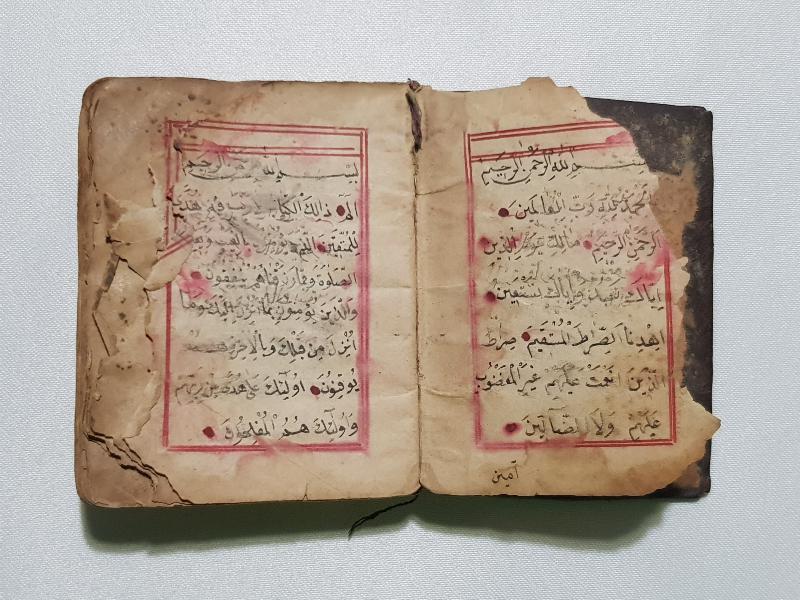 بسم الله الرحمن الرحيم
الحمد لله رب العالمين
الرحمن الرحيم مالك يوم الدين
اياك نعبد واياك نستعين
اهدنا الصراط المستقيم صراط
الذين انعمت عليهم غير المغضوب
عليهم ولا الضالين
آمين
بسم الله الرحمن الرحيم
الم ذالك الكتاب لا ريب فيه هدى
للمتقين الذين يؤمنون بالغيب
الصلوة ومما رزقناهم ينفقون
والذين يؤمنون بما انزل اليك وما
انزل من قبلك وبالاخرة هم
يوقنون اولئك على هدى من ربهم
واولئك هم المفلحون